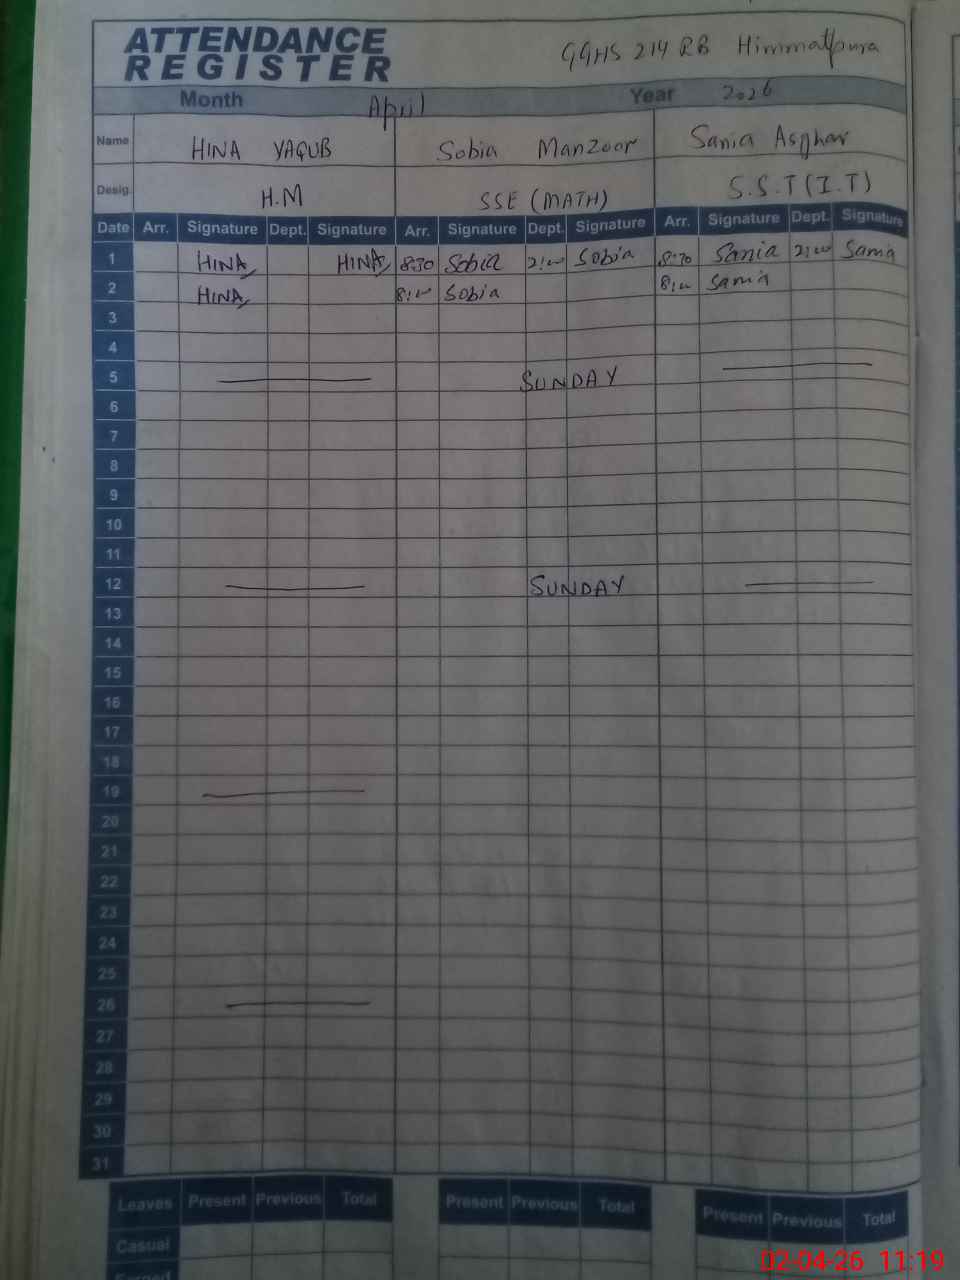 ATTENDANCE
REGISTER
GGHS 214 RB Himmatpura
Month April Year 2026
Name HINA YAQUB Sobia Manzoor Sania Asghar
Desig. H.M SSE (MATH) S.S.T (I.T)
Date Arr. Signature Dept. Signature Arr. Signature Dept. Signature Arr. Signature Dept. Signature
1 HINA HINA 8:30 Sobia 2:00 Sobia 8:30 Sania 2:00 Sania
2 HINA 8:00 Sobia 8:00 Sania
3
4
5 SUNDAY
6
7
8
9
10
11
12 SUNDAY
13
14
15
16
17
18
19
20
21
22
23
24
25
26
27
28
29
30
31
Leaves Present Previous Total Present Previous Total Present Previous Total
Casual
02-04-26 11:19